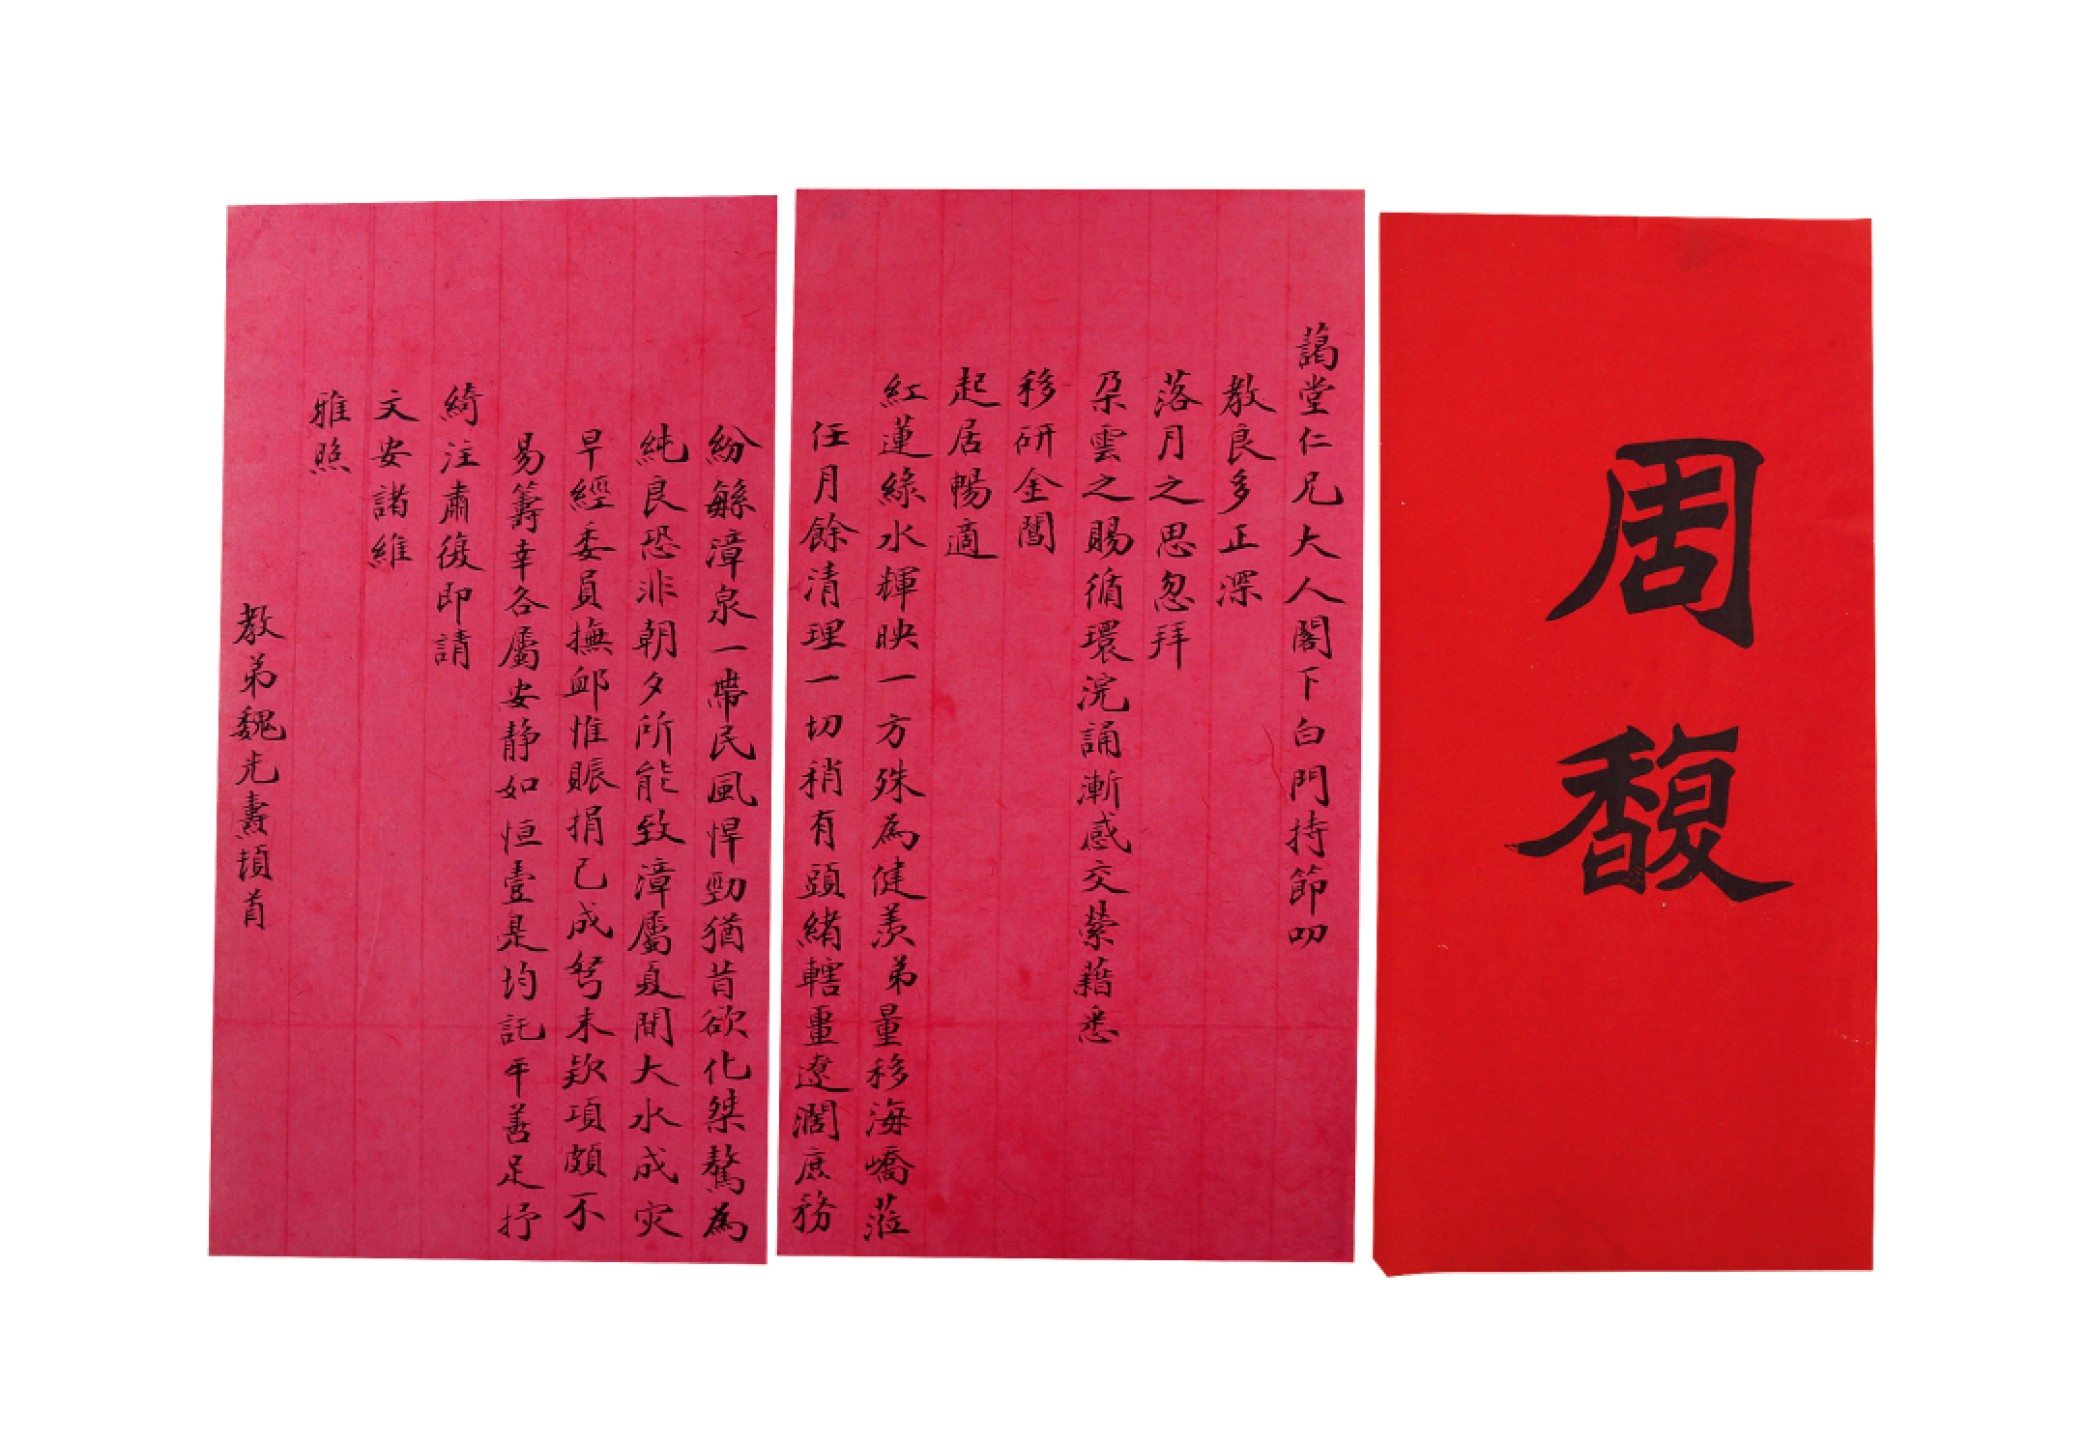 周馥
藹堂仁兄大人閣下白門持節叨
教良多正深
落月之思忽拜
朶雲之賜循環浣誦漸感交縈藉悉
移研金閶
起居暢適
紅蓮綠水輝映一方殊為健羨弟量移海嶠蒞
任月餘清理一切稍有頭緒轄畺遼濶庶務
紛緐漳泉一帶民風悍勁猶昔欲化桀驁為
純良恐非朝夕所能致漳屬夏間大水成災
早經委員撫卹惟賑捐已成弩末欵項頗不
易籌幸各屬安靜如恒壹是均託平善足抒
綺注肅復即請
文安諸維
雅照
教弟魏光燾頓首